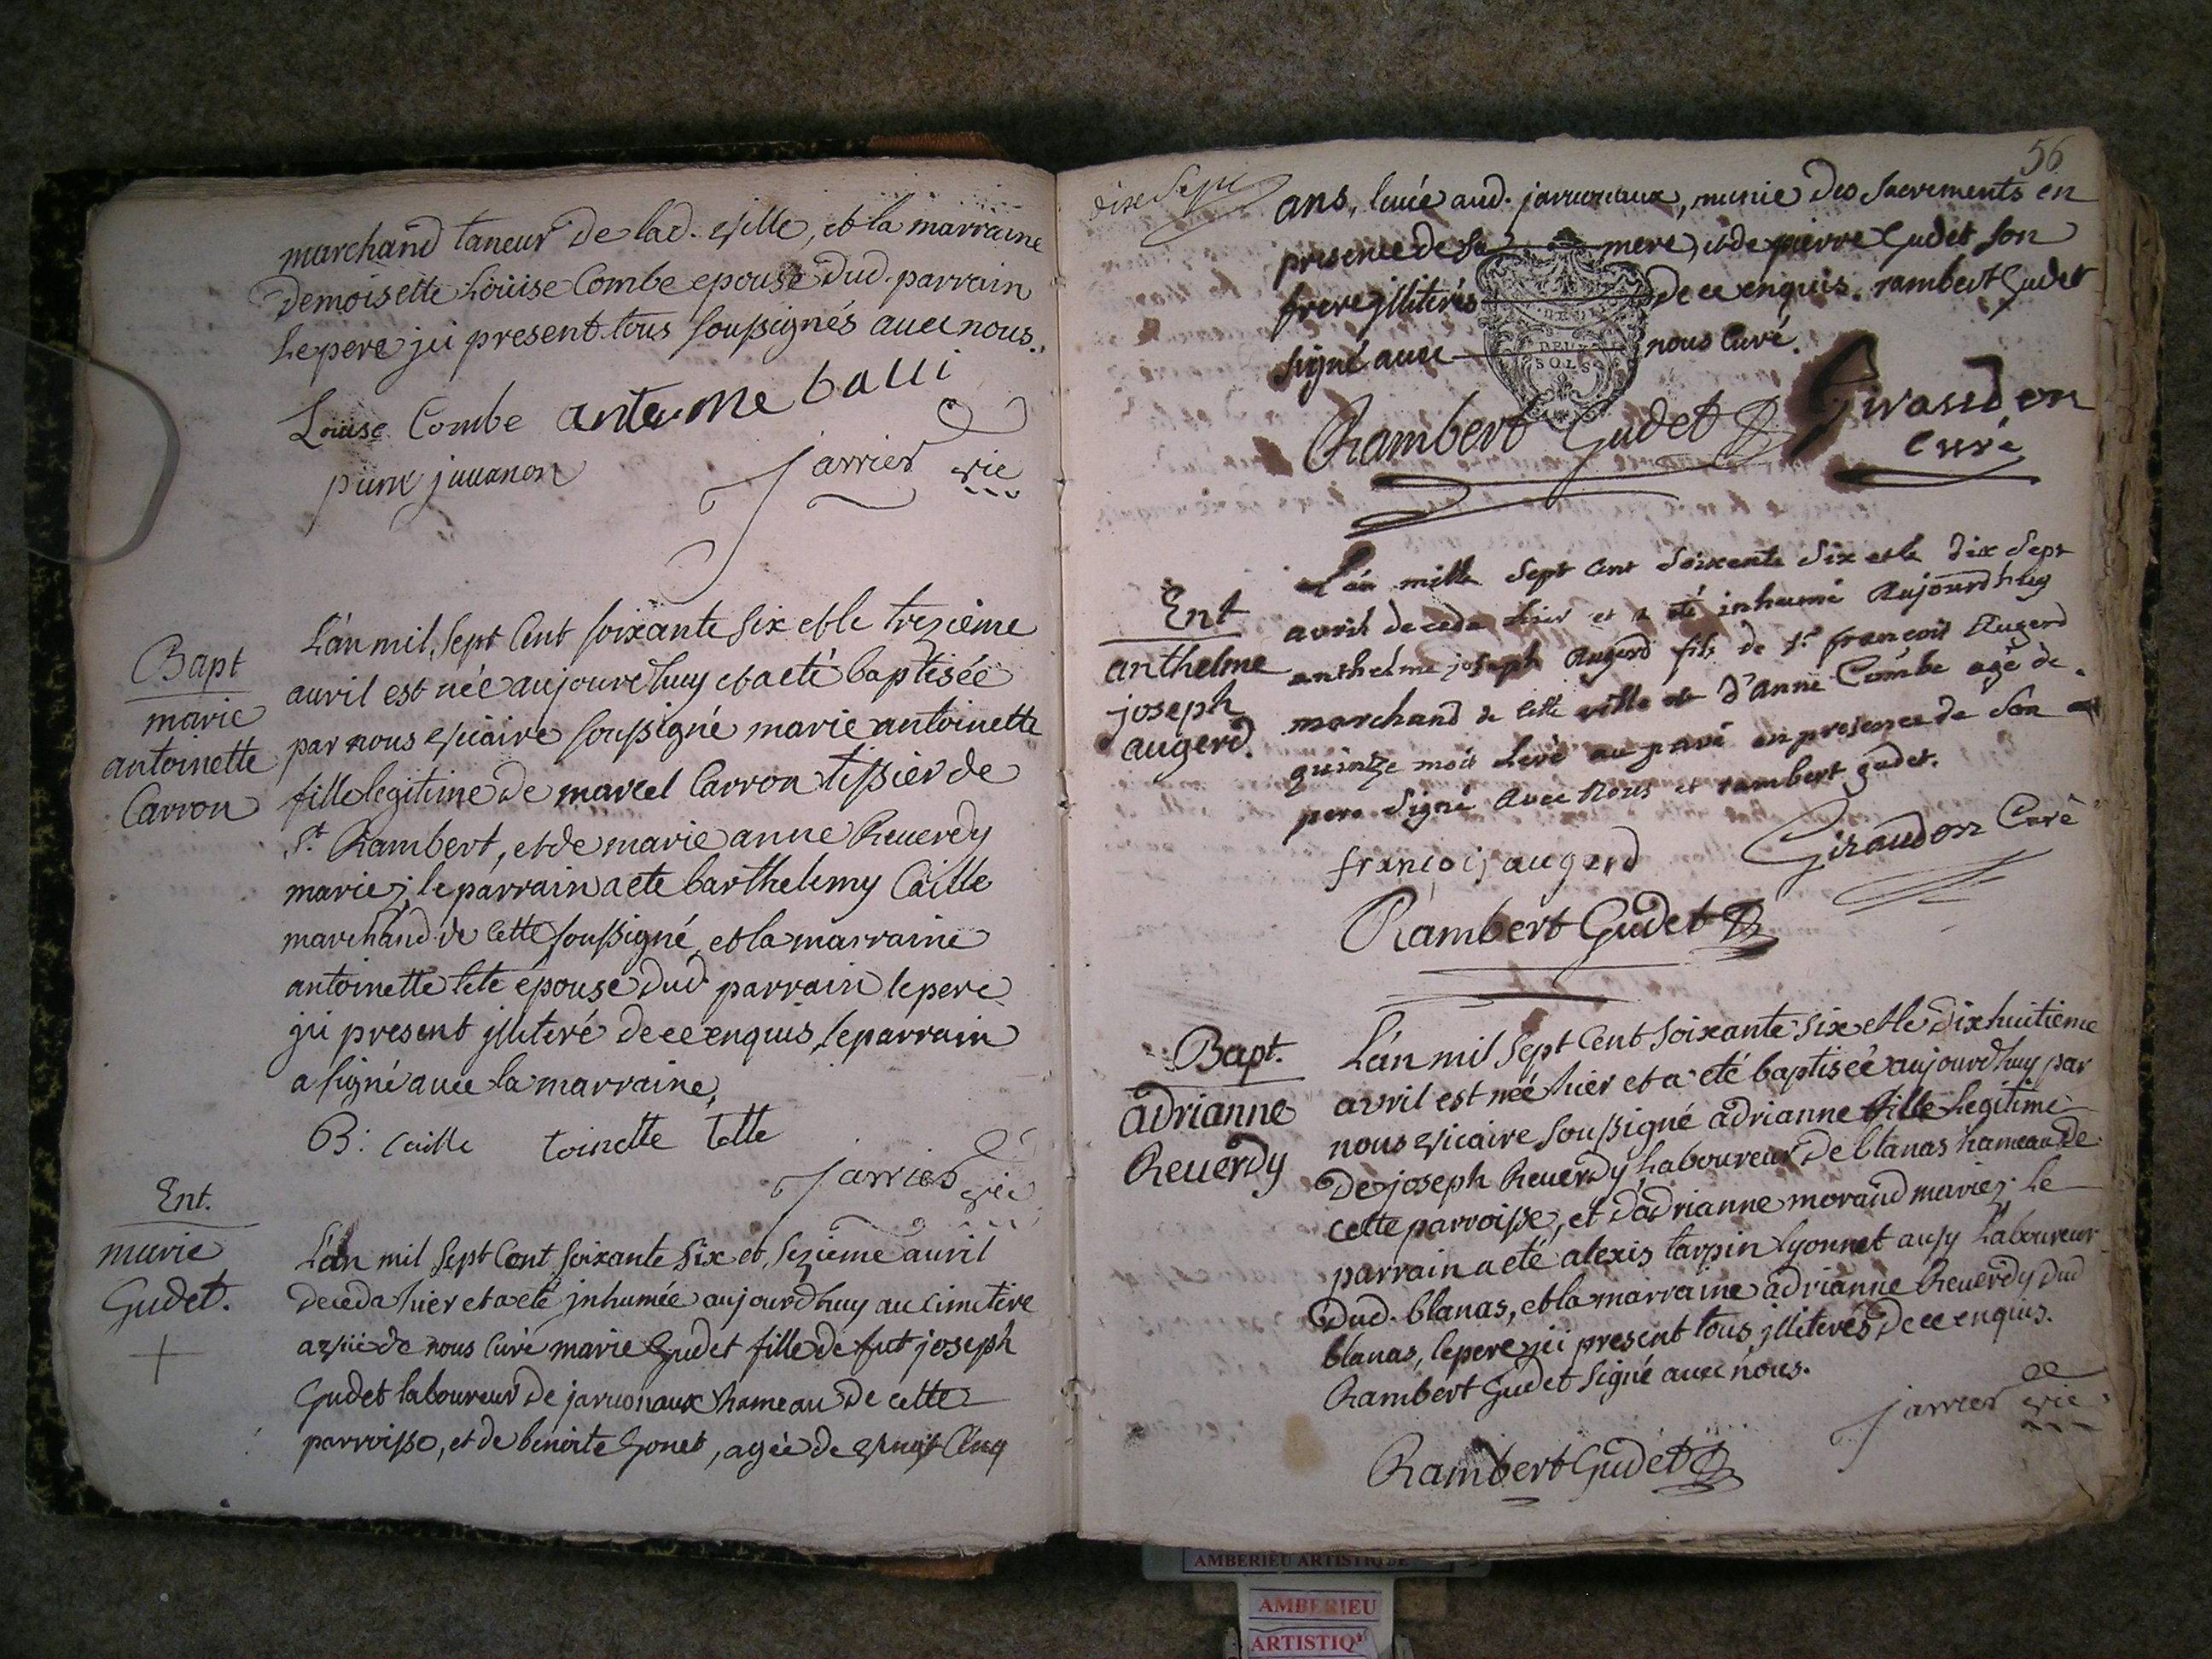 marchand taneur de lad. ville, et la marraine
Demoiselle Loüise Combe epouse dud. parrain
le pere jci present tous soussignés avec nous.
Loüise Combe antoine balli
jarrier vic
Bapt
marie
antoinette
Carron
L'an mil sept cent soixante six et le trezième
avril est néé aujourd'huy et a eté baptisée
par nous vicaire soussigné marie antoinette
fille legitime de marcel Carron tissier de
St. Rambert, et de marie anne Reverdy
mariez; le parrain a eté barthelemy Caille
marchand de cette soussigné, et la marraine
antoinette tete épouse dud parrain le pere
jci present jlliteré de ce enquis, le parrain
a signé avec la marraine,
B: Caille toinette tette
jarrier vic
Ent.
marie
Gudet.
L'an mil sept cent soixante six et sezieme avril
deceda hier et a eté jnhumée aujourd'huy au cimetiere
de nous curé marie Gudet fille de fut joseph
Gudet laboureur de jarvonaux hameau de cette
parroisse, et de benoite Gonet, agée de vingt cinq
56
dix sept
ans, levée aud. jarvonaux, munie des sacrements en
presence de sa mere, et de pierre Gudet son
frere jlliterés de ce enquis. rambert Gudet
signé avec nous curé.
DEUX
SOLS
Rambert Gudet Giraud en
curé
Ent
anthelme
joseph
augerd.
L'an mille sept cent soixente six et le dix sept
avril deceda hier et a eté inhumé aujourd'huy
anthelme joseph augerd fils de sr. françois Augerd
marchand de cette ville et d'anne Combe agé de
quintze mois levé au pavé en presence de son
pere signé avec nous et rambert gudet.
françois augerd Giraudon Curé
Rambert Gudet
Bapt.
adrianne
Reverdy
L'an mil sept cent soixante six et le dix huitieme
avril est néé hier et a eté baptiséé aujourd'huy par
nous vicaire soussigné adrianne fille legitime
de joseph Reverdy, laboureur de blanas hameau de
cette parroisse, et d'adrianne moraud mariez; le
parrain a eté alexis tarpin lyonnet aussy laboureur
dud. blanas, et la marraine adrianne Reverdy dud
blanas, le pere jci present tous jlliterés de ce enquis.
Rambert Gudet signé avec nous.
jarrier vic
Rambert Gudet
AMBERIEU ARTISTIQUE
AMBERIEU
ARTISTIQ